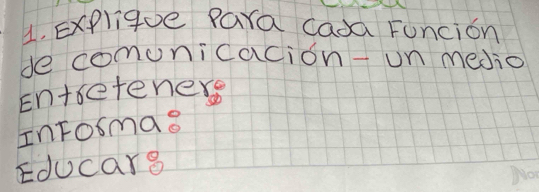 1. Explique Para cada Función
de comunicación - un medio
Entretener:
Informa:
Educar: